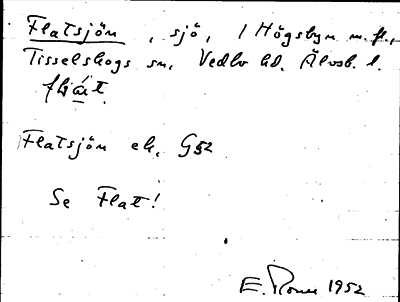 Flatsjön, sjö, / Högsbyn m. fl.,
Tisselskogs sn, Vedbo hd. Älvsb. l.
flat
Flatsjön ek. G52
Se Flat!
E. Rome 1952